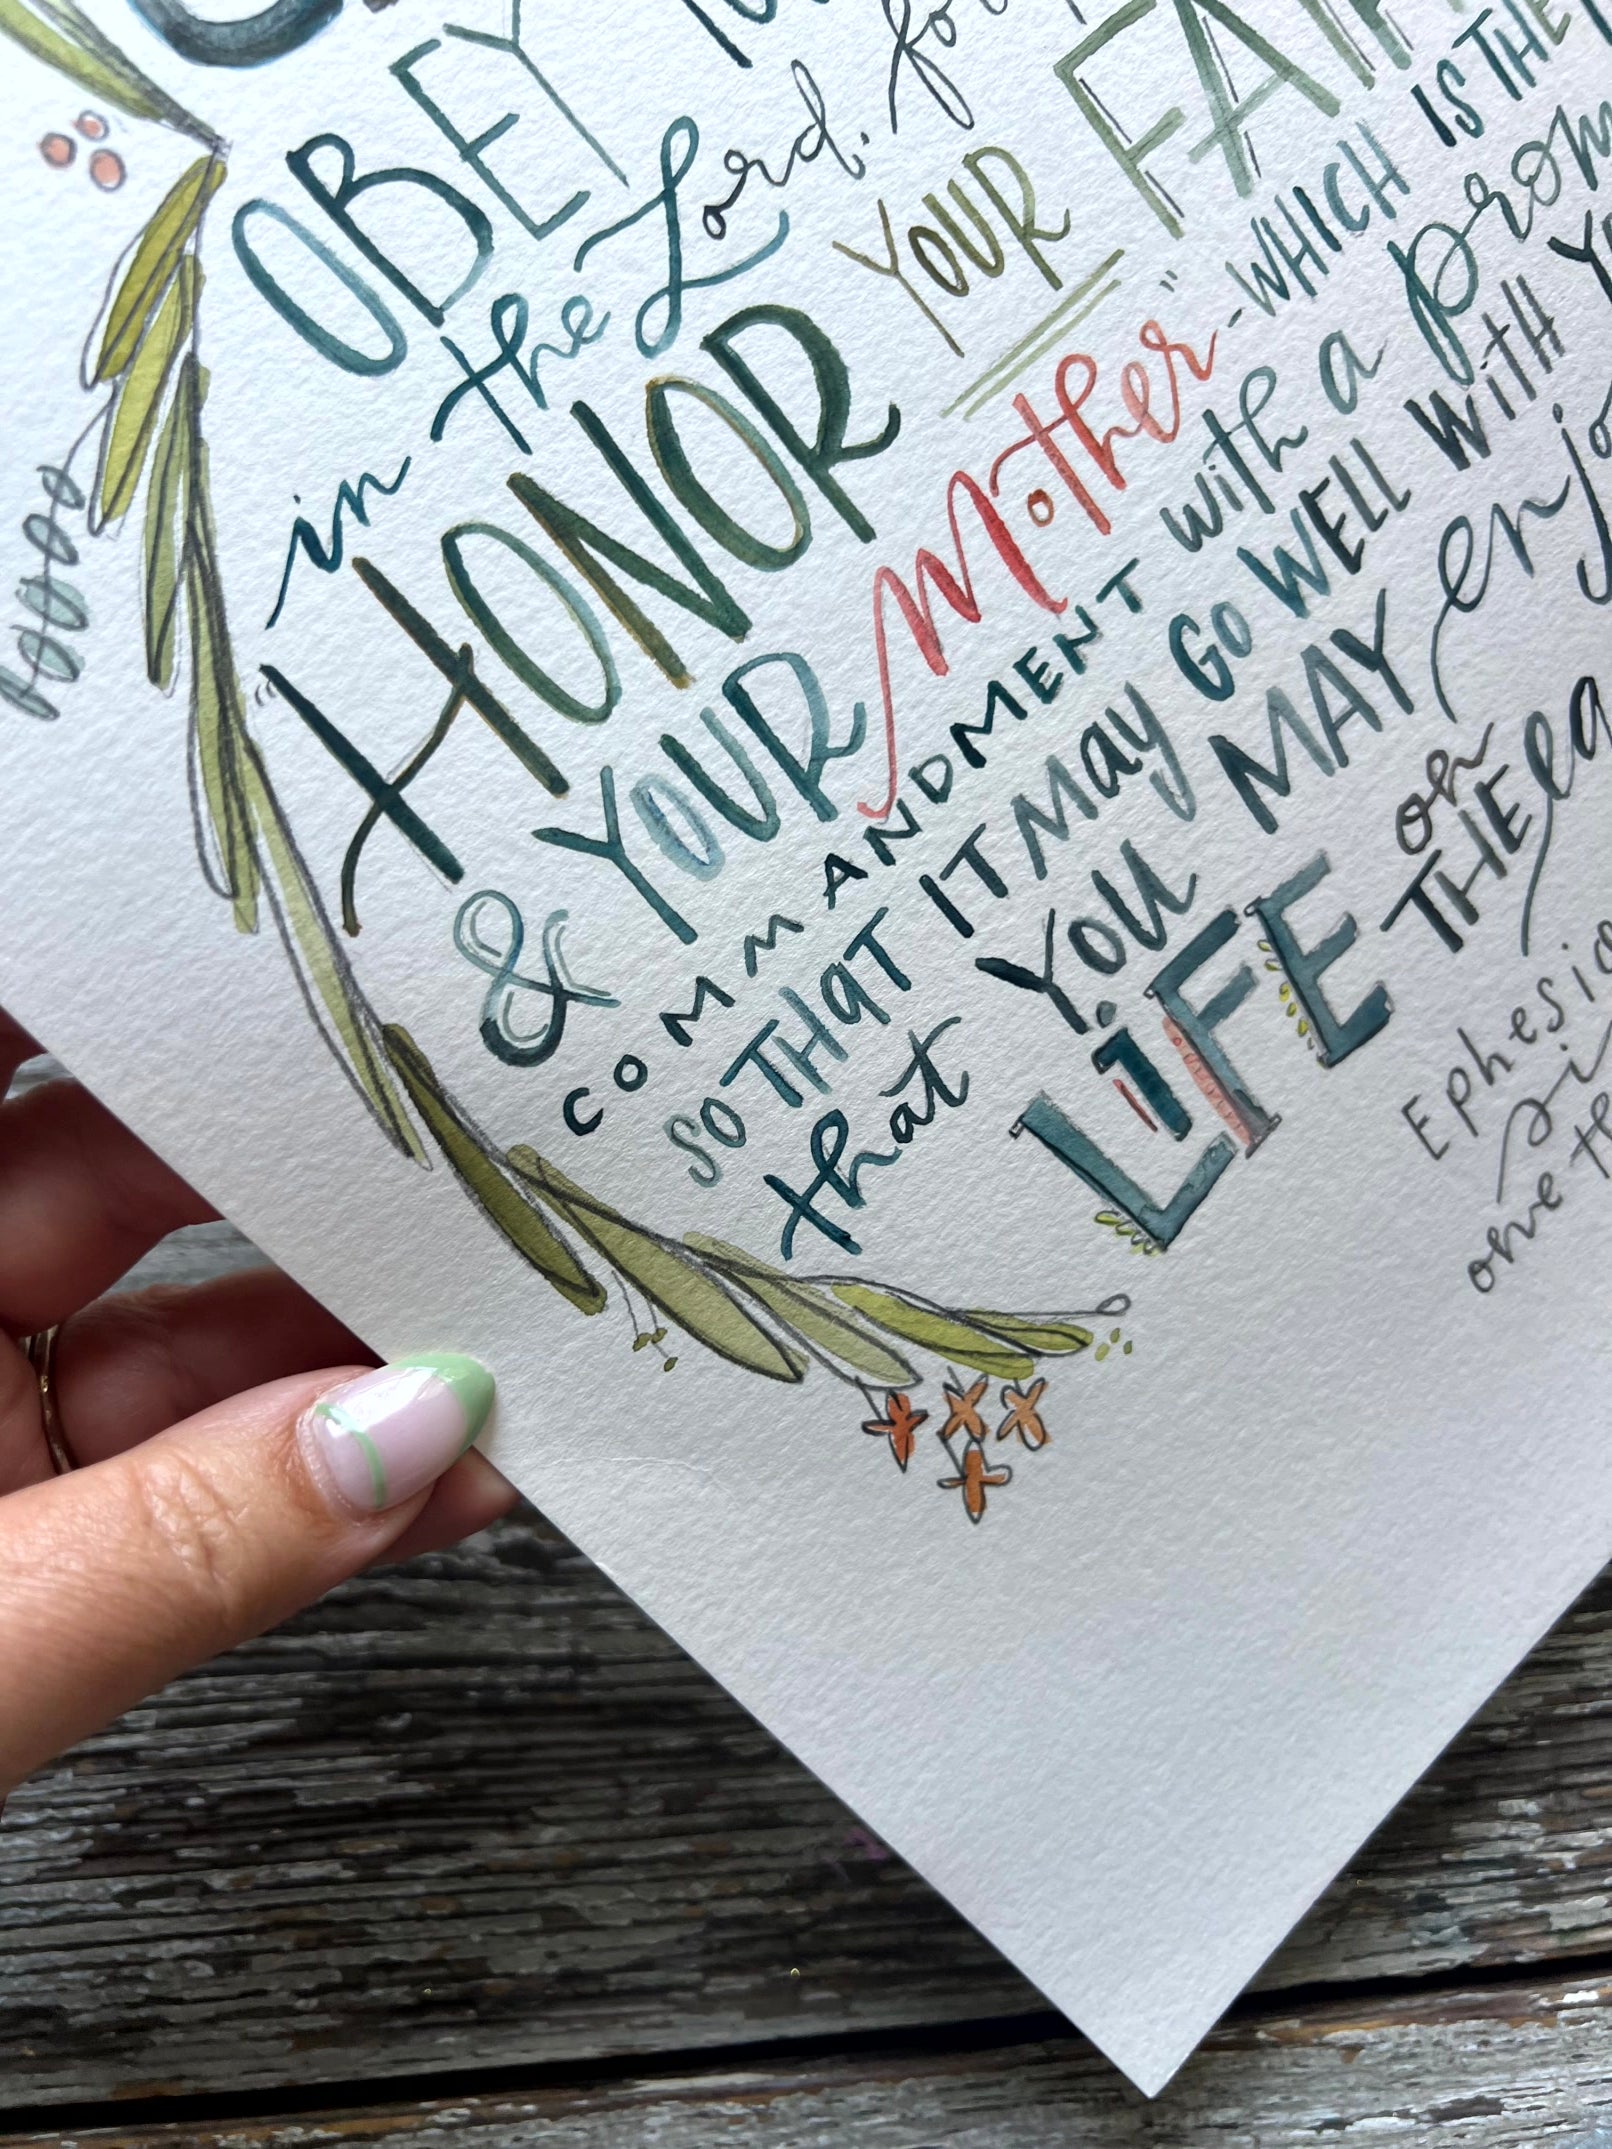 OBEY
in the Lord. for
"HONOR YOUR
& YOUR Mother" - WHICH IS THE
COMMANDMENT with a
SO THAT IT May GO WELL WITH
that YOU MAY
LIFE on THE
one